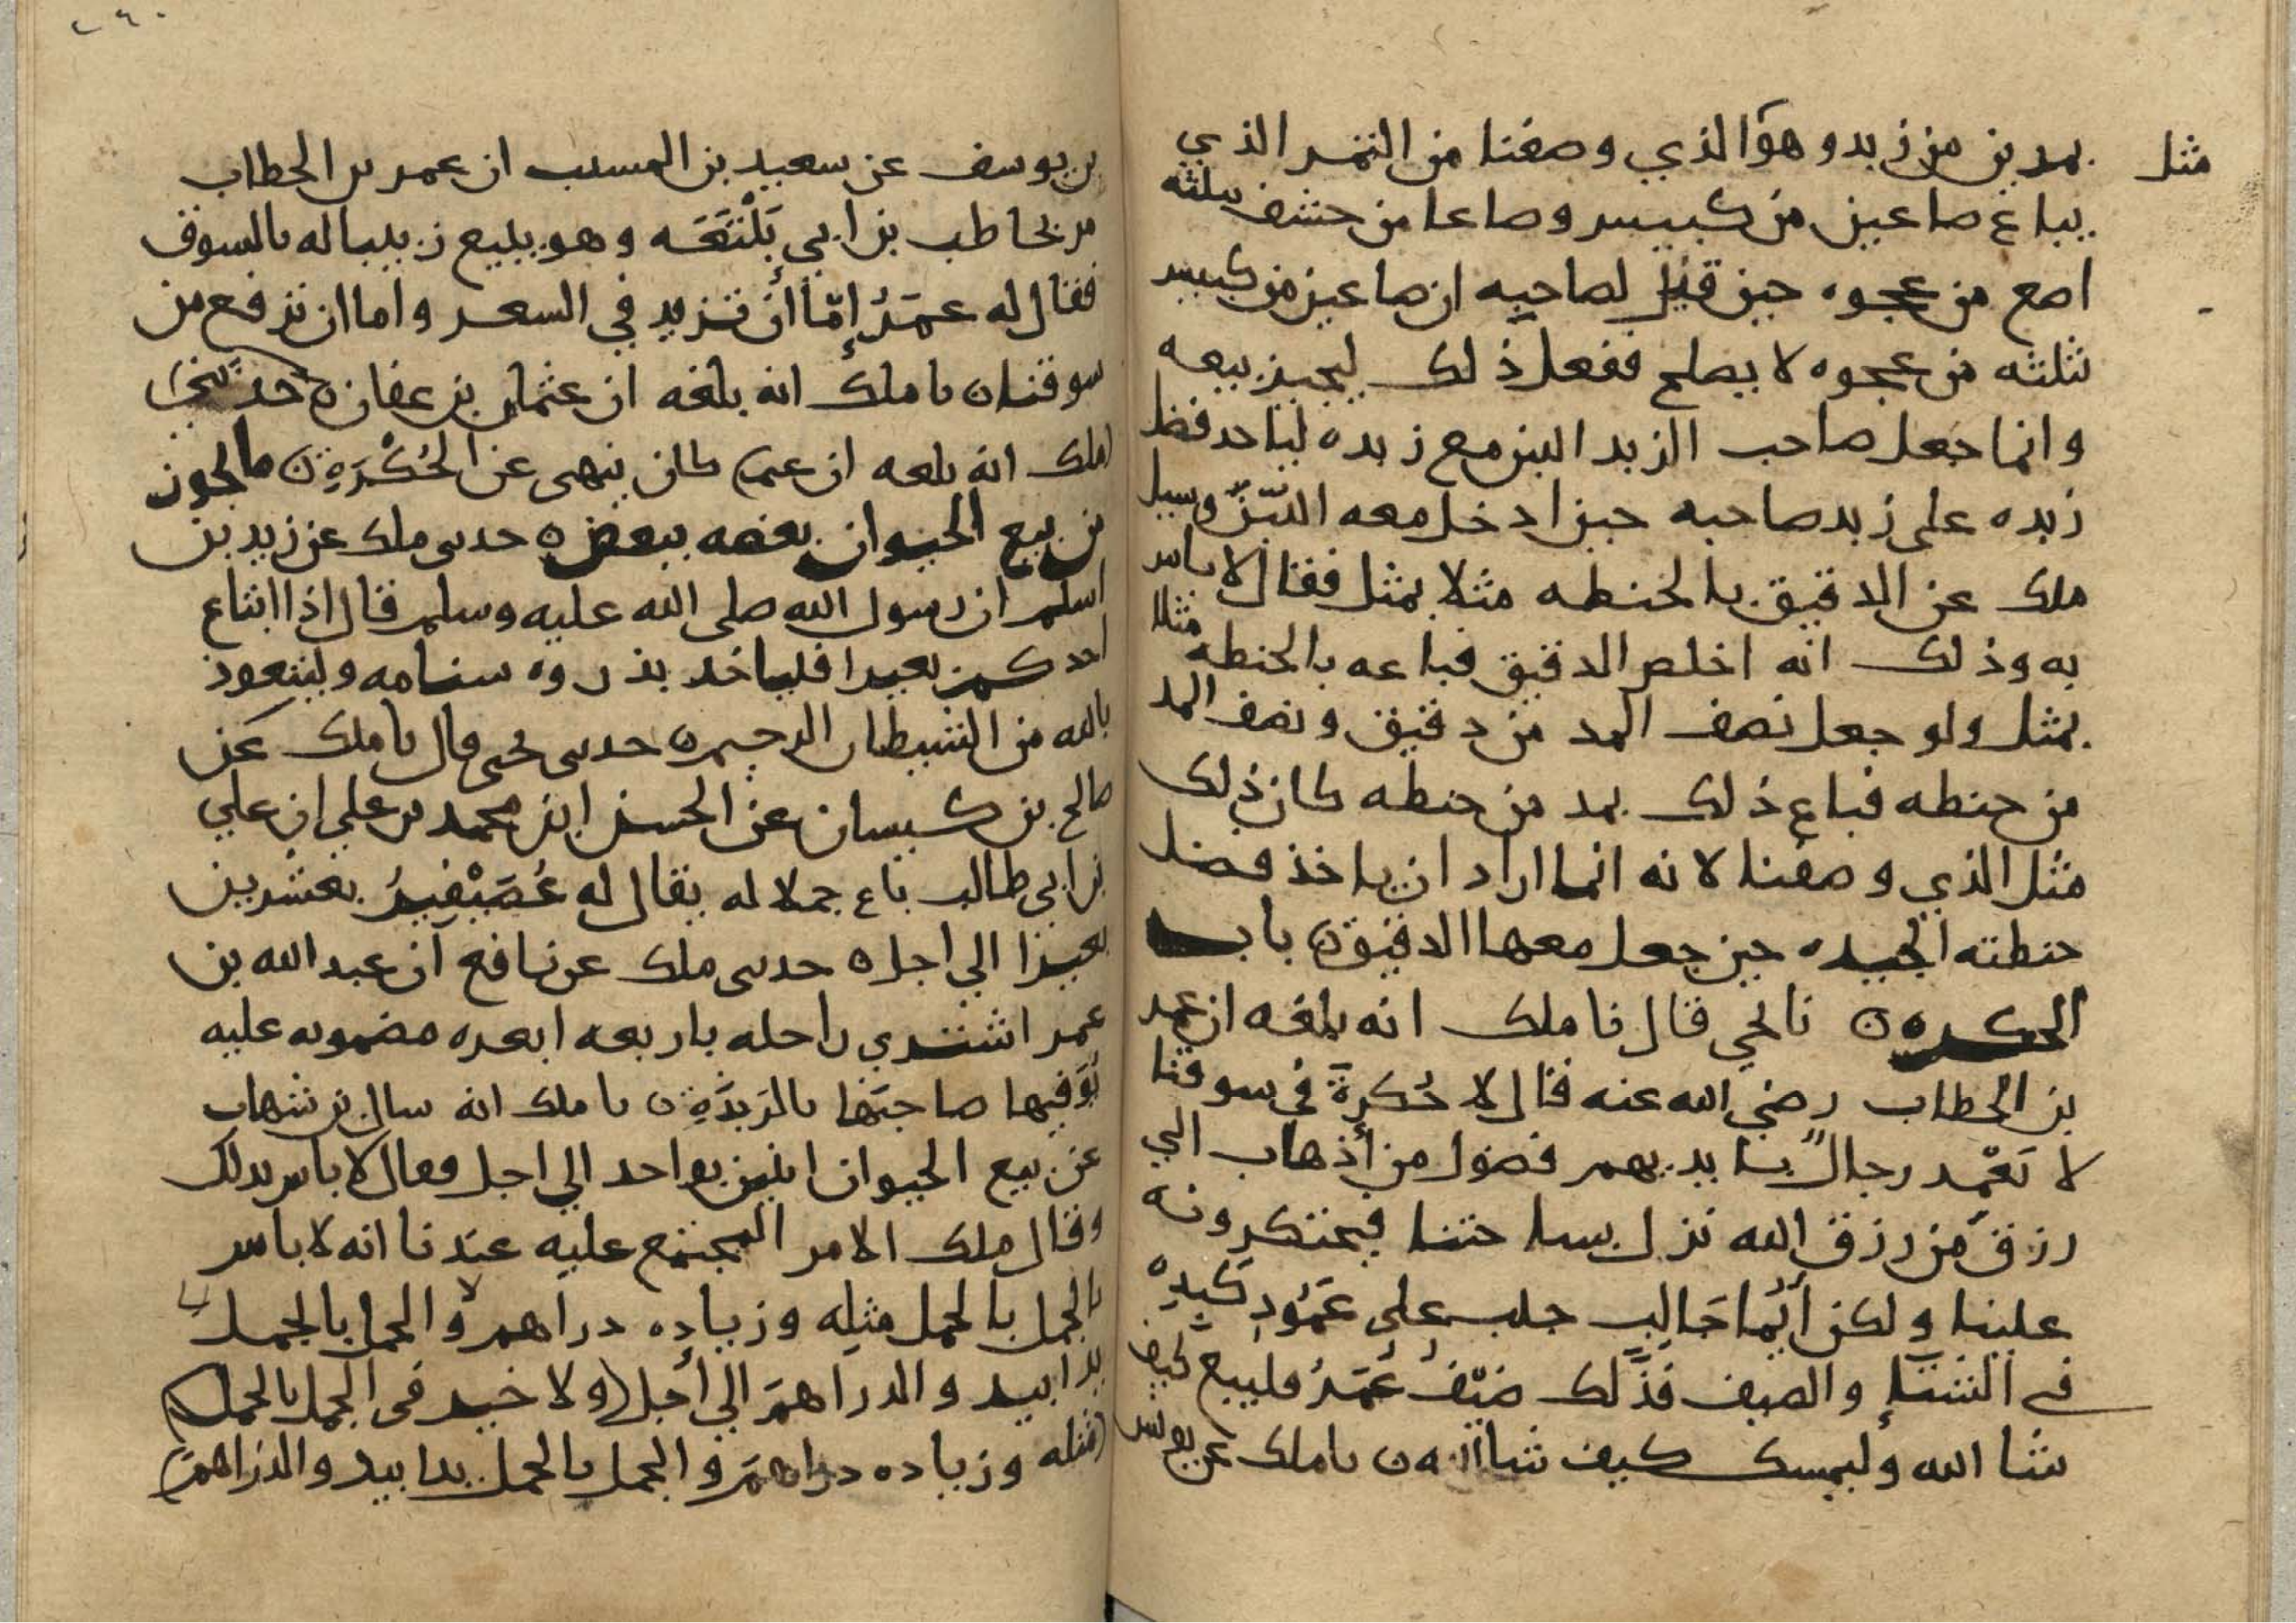 مثل
بمدين من زبد وهو الذي وصفنا من التمر الذي
يباع صاعين من كبيس وصاعا من حشف بثلثه
اصع من عجوه حين قيل لصاحبه ان صاعين من كبيس
بثلثه من عجوه لا يصلح ففعل ذلك ليجيز بيعه
وانما جعل صاحب الزبد اللبن مع زبده لياخد فضل
زبده على زبد صاحبه حين ادخل معه اللبن وسيل
ملك عن الدقيق بالحنطه مثلا بمثل فقال لا باس
به وذلك انه اخلص الدقيق فباعه بالحنطه مثلا
بمثل ولو جعل نصف المد من دقيق ونصف المد
من حنطه فباع ذلك بمد من حنطه كان ذلك
مثل الذي وصفنا لانه انما اراد ان ياخذ فضل
حنطته الجيده حين جعل معها الدقيق ه باب
الحكره ه نا يحي قال نا ملك انه بلغه ان عمر
بن الخطاب رضي الله عنه قال لا حُكرة في سوقنا
لا تَعْمِد رجالٌ بايديهم فضول من أذهاب الي
رزق من رزق الله نزل بساحتنا فيحتكرونه
علينا ولكن أيُّما جَالِب جلب على عَمُودِ كَبِدِه
في الشتاءِ والصيف فذَلك ضيْفُ عُمَرُ فليبع كيف
شا الله وليمسك كيف شا الله ه نا ملك عن يونس
٢٩٠
بن يوسف عن سعيد بن المسيب ان عمر بن الخطاب
مر بخاطب بن ابي بَلْتَعَه وهو يبيع زبيبا له بالسوق
فقال له عمَرُ إمّا أن تزيد في السعر واما ان ترفع من
سوقنا ه نا ملك انه بلغه ان عثمان بن عفان ه حدثني
ملك انه بلغه ان عثمن كان ينهى عن الحُكْرَةِ ه ما يجوز
من بيع الحيوان بعضه ببعض ه حدثني ملك عن زيد بن
اسلم ان رسول الله صلى الله عليه وسلم قال اذا ابتاع
احدكم بعيرا فلياخد بذروه سنامه وليتعوذ
بالله من الشيطان الرجيم ه حدثني يحيى قال نا ملك عن
صالح بن كيسان عن الحسن ابن محمد بن علي ان علي
بن ابي طالب باع جملا له يقال له عُصَيْفِيرُ بعشرين
بعيرا الي اجل ه حدثني ملك عن نافع ان عبد الله بن
عمر اشتري راحله باربعه ابعره مضمونه عليه
يُوَفيها صاحبَها بالرَبذَةِ ه نا ملك انه سال بن شهاب
عن بيع الحيوان اثنين بواحد الي اجل فقال لا باس بذلك
وقال ملك الامر المجتمع عليه عندنا انه لا باس
بالجمل بالجمل مثله وزياده دراهم ولا الجمل بالجمل
يدا بيد والدراهمَ الي أجل ولا خير في الجمل بالجمل
مثله وزياده دراهمَ والجمل بالجمل يدا بيد والدراهمَ